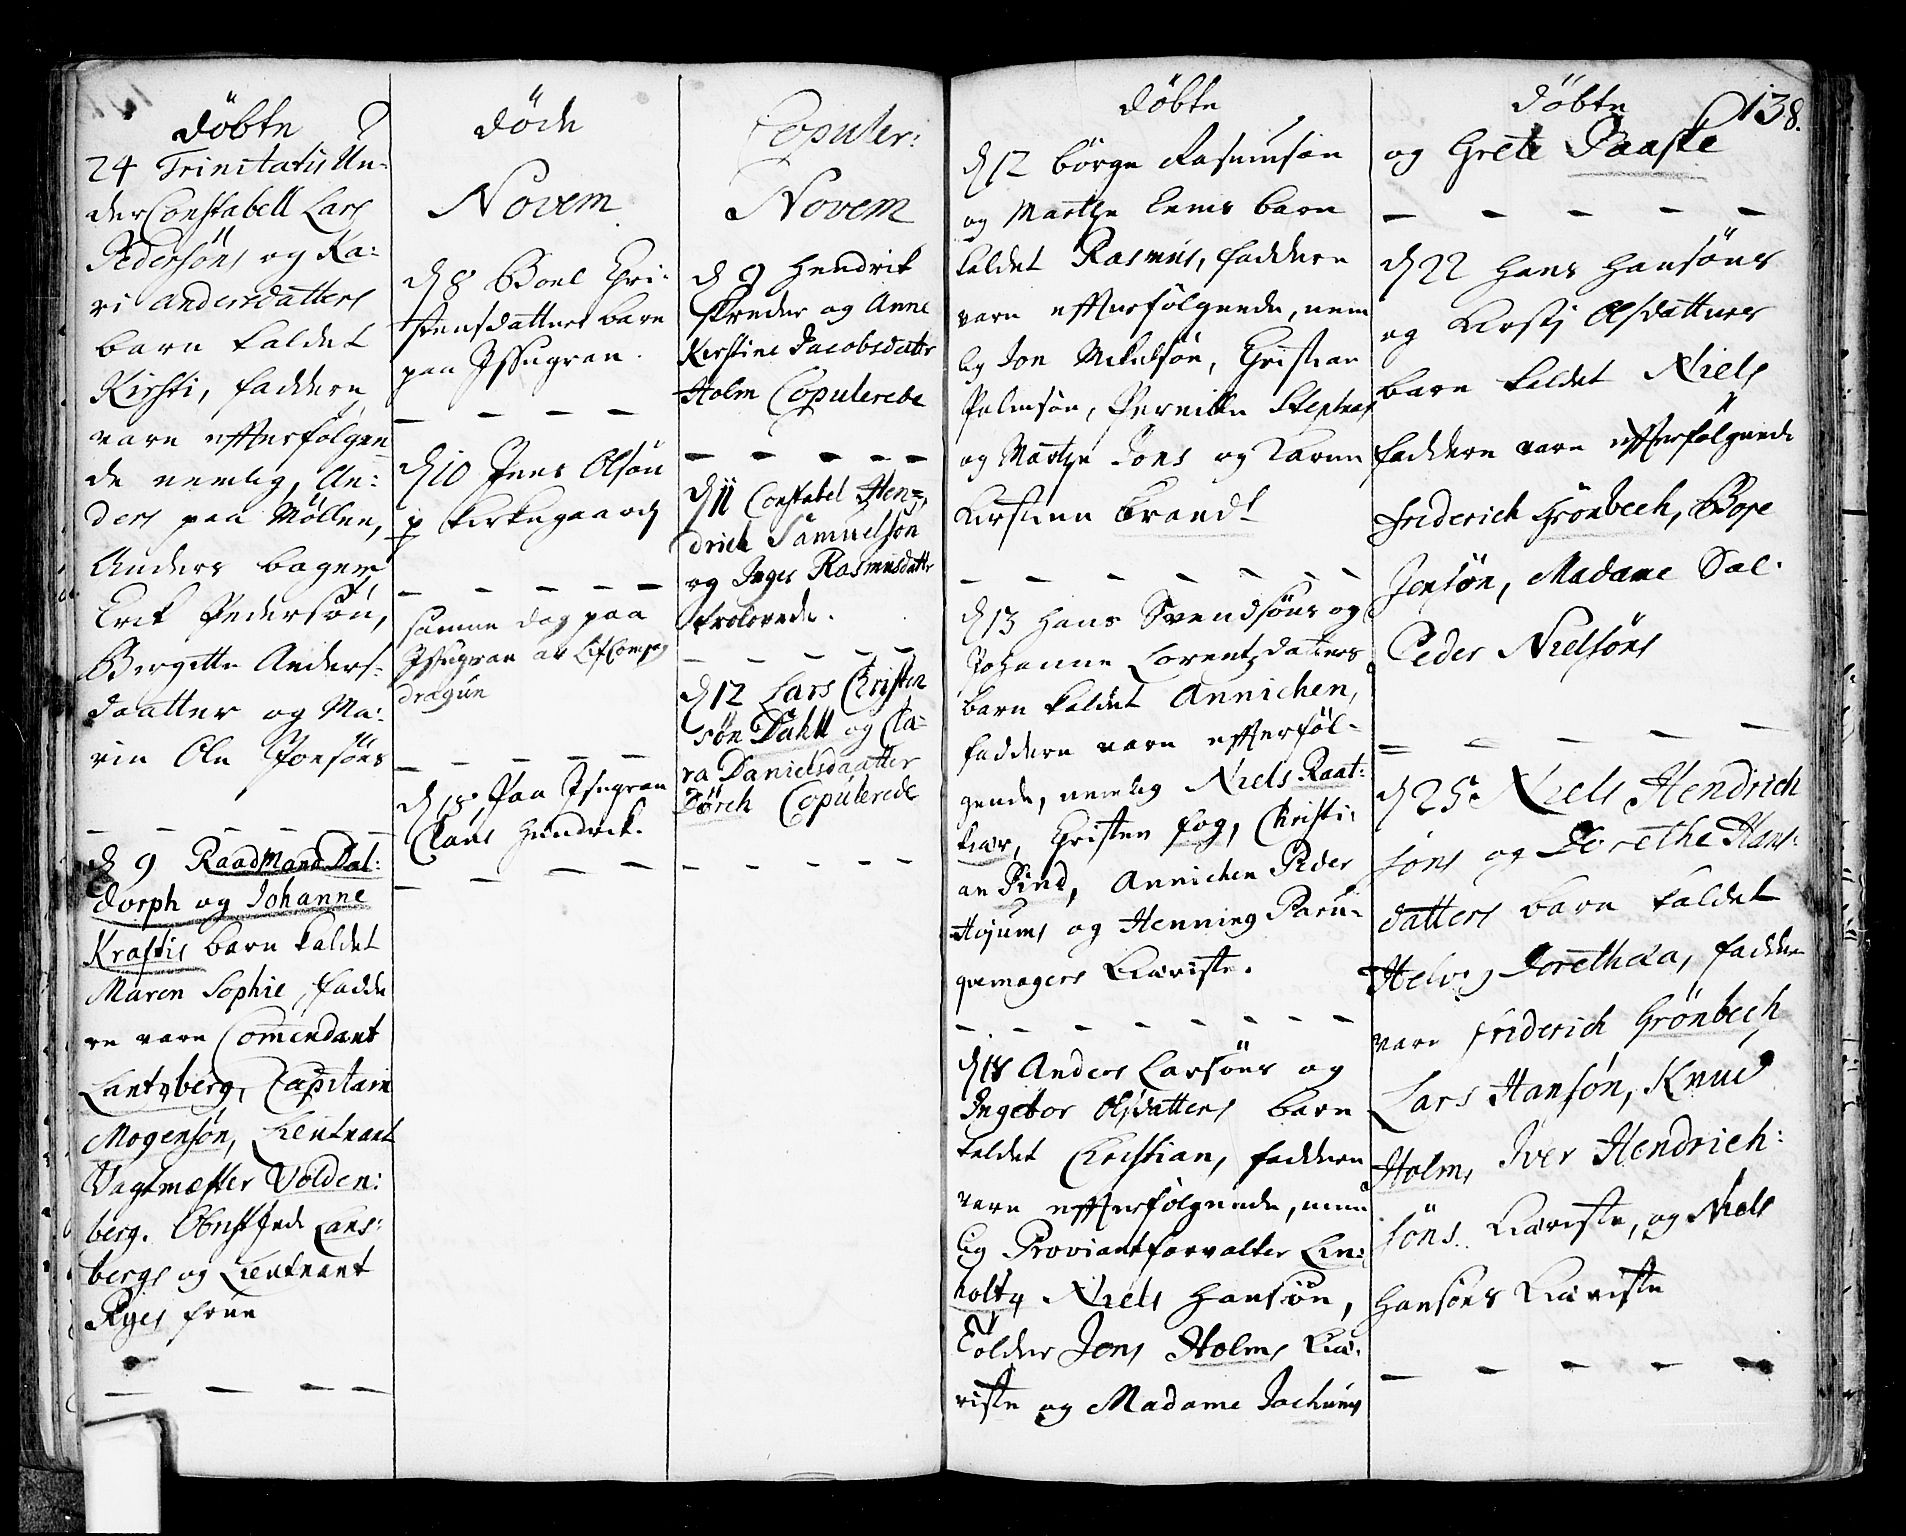 Döbte
24 Trinitatis Un-
der Constabell Lars
Pedersöns og Ka:
ri Andersdatters
barn kaldet
Kirsti, faddere
vare effterfölgen
de nemlig, An:
ders paa Möllen,
Anders bager
Erik Pedersön,
Birgitte Anders-
daatter og Ma:
rin Ole Jonsöns
D 9 Raadmand Dal-
dorph og Johanne
Krafts barn kaldet
Maren Sophie, fadde
re vare Comendant
Lantzberg, Capitain
Mogensön, Lieutnant
Vagtmæster Volden:
berg. Lans-
bergs og Lieutnant
Ryes frue
Döde
Novem
D 8 Boel Chri-
stensdatters barn
paa Issugran.
D 10 Jens Olsön
p kirkegaard
samme dag paa
Issugran av LifCompag
dragun
D 18 Paa Isugran
Claus Hendrik.
Copuler:
Novem
D 9 Hendrik
skreder og Anne
Kirstine Jacobsdattr
Holm Copulerede
D 11 Constabel Hen=
drich Samuelsön
og Inger Rasmusdattr
trolovede.
D 12 Lars Christen
sön Dahll og Cla=
ra Danielsdaatter
Dörch Copulerede
Döbte
D 12 Börge Rasmusön
og Marthe Lems barn
kaldet Rasmus, faddere
vare effterfölgende, nem
lig Jon Mikelsön, Christian
Palmsön, Pernille Stephens
og Marthe Jons og Karen
Kirstine Brandt
D 13 Hans Svendsöns og
Johanne Lorentzdatters
barn kaldet Annichen,
faddere vare effterföl-
gende, nemlig Niels Raat:
kiær, Christen fog, Christi:
an Pind, Annichen Peder
Hojums og Henning Paru-
qvemagers Kiæriste.
D 18 Anders Larsöns og
Ingebor Olsdatters barn
kaldet Christian, faddere
vare effterfölgende, nem
lig Proviantforvalter Lin:
holtz Niels Hansön,
Tolder Jens Holms Kiæ:
riste og Madame Jochums
Döbte 138.
og Grete Paaske
D 22 Hans Hansöns
og Kirstj Olsdatters
barn kaldet Niels
faddere vare effterfölgende
Friderich Grönbech, Boye
Jensön, Madame Sal.
Peder Nielsöns
D 25 Niels Hendrich
söns og Dorethe Hans-
datters barn kaldet
Helvig Dorethæa, fadder
vare Friderich Grönbech
Lars Hansön, Knud
Holm, Iver Hendrich:
söns Kiæriste, og Niels
Hansöns Kiæriste